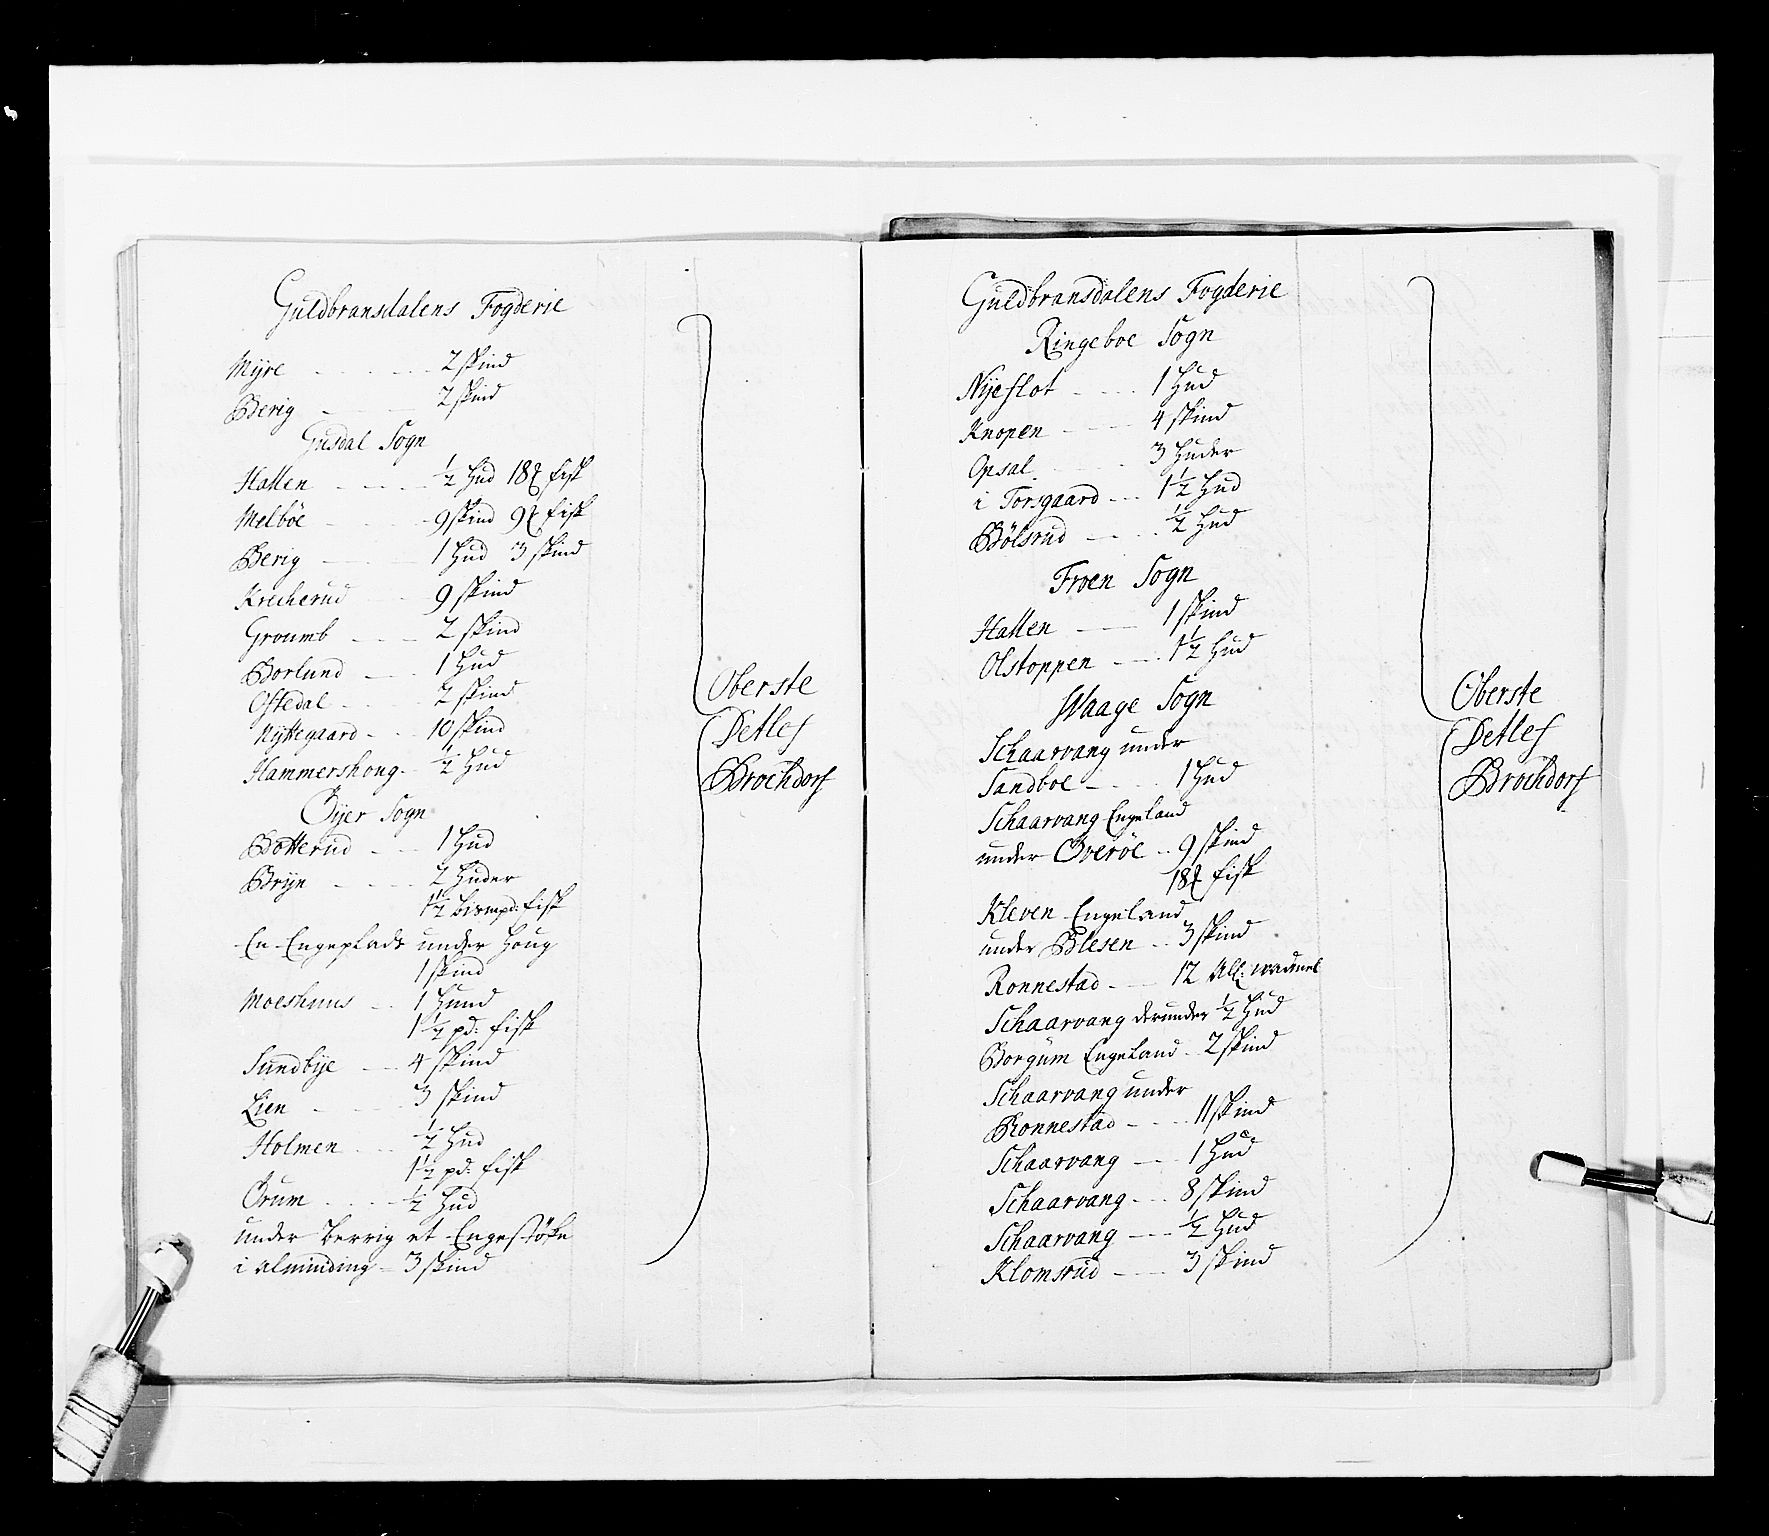 Guldbransdalens Fogderie
Mÿre - - - - - 2 skind
Berig - - - 2 skind
Gusdal Sogn
Hatten - - - - ½ Hud 18 ℔ fisk
Melböe - - - - 9 skind 9 ℔ fisk
Berig - - - 1 Hud 3 skind
Krecherud - - - 9 skind
Groumb - - - 2 skind
Borlund - - - 1 Hud
Ofstedal - - - 2 skind
Nÿttegaard - - - 10 skind
Hammershoug - ½ Hud
Öÿer Sogn
Botterud - - - 1 Hud
Brÿn - - - - 2 Huder
1½ bismpd: fisk
En Engeplads under Houg
1 skind
Moeshuus - - 1 Hund
1½ pd: fisk
Sundbÿe - - - 4 skind
Lien - - - - 3 skind
Holmen - - - ½ Hud
1½ pd: fisk
Örum - - - - ½ Hud
under Berrig et Engestöke
i alminding - 3 skind
Oberste
Detlef
Brochdorf
Guldbransdalens Fogderie
Ringeboe Sogn
Nÿeslot - - - - 1 Hud
Knopen - - - - 4 skind
Opsal - - - - 3 Huder
i Torsgaard - - - 1½ Hud
Bölsrud - - - - ½ Hud
Froen Sogn
Hatten - - - 1 skind
Olstoppen - - - 1½ Hud
Waage Sogn
Schaarvang under
Sandboe - - - - 1 Hud
Schaarvang Engeland
under Överöe - - 9 skind
18 ℔ fisk
Kleven Engeland
under Blesen - - 3 skind
Ronnestad - - - 12 All: wadmel
Schaarvang derunder ½ Hud
Borgum Engeland - 2 skind
Schaarvang under
Ronnestad - - - - 11 skind
Schaarvang - - - 1 Hud
Schaarvang - - - 8 skind
Schaarvang - - - ½ Hud
Klomsrud - - - 3 skind
Oberste
Detlef
Brochdorf